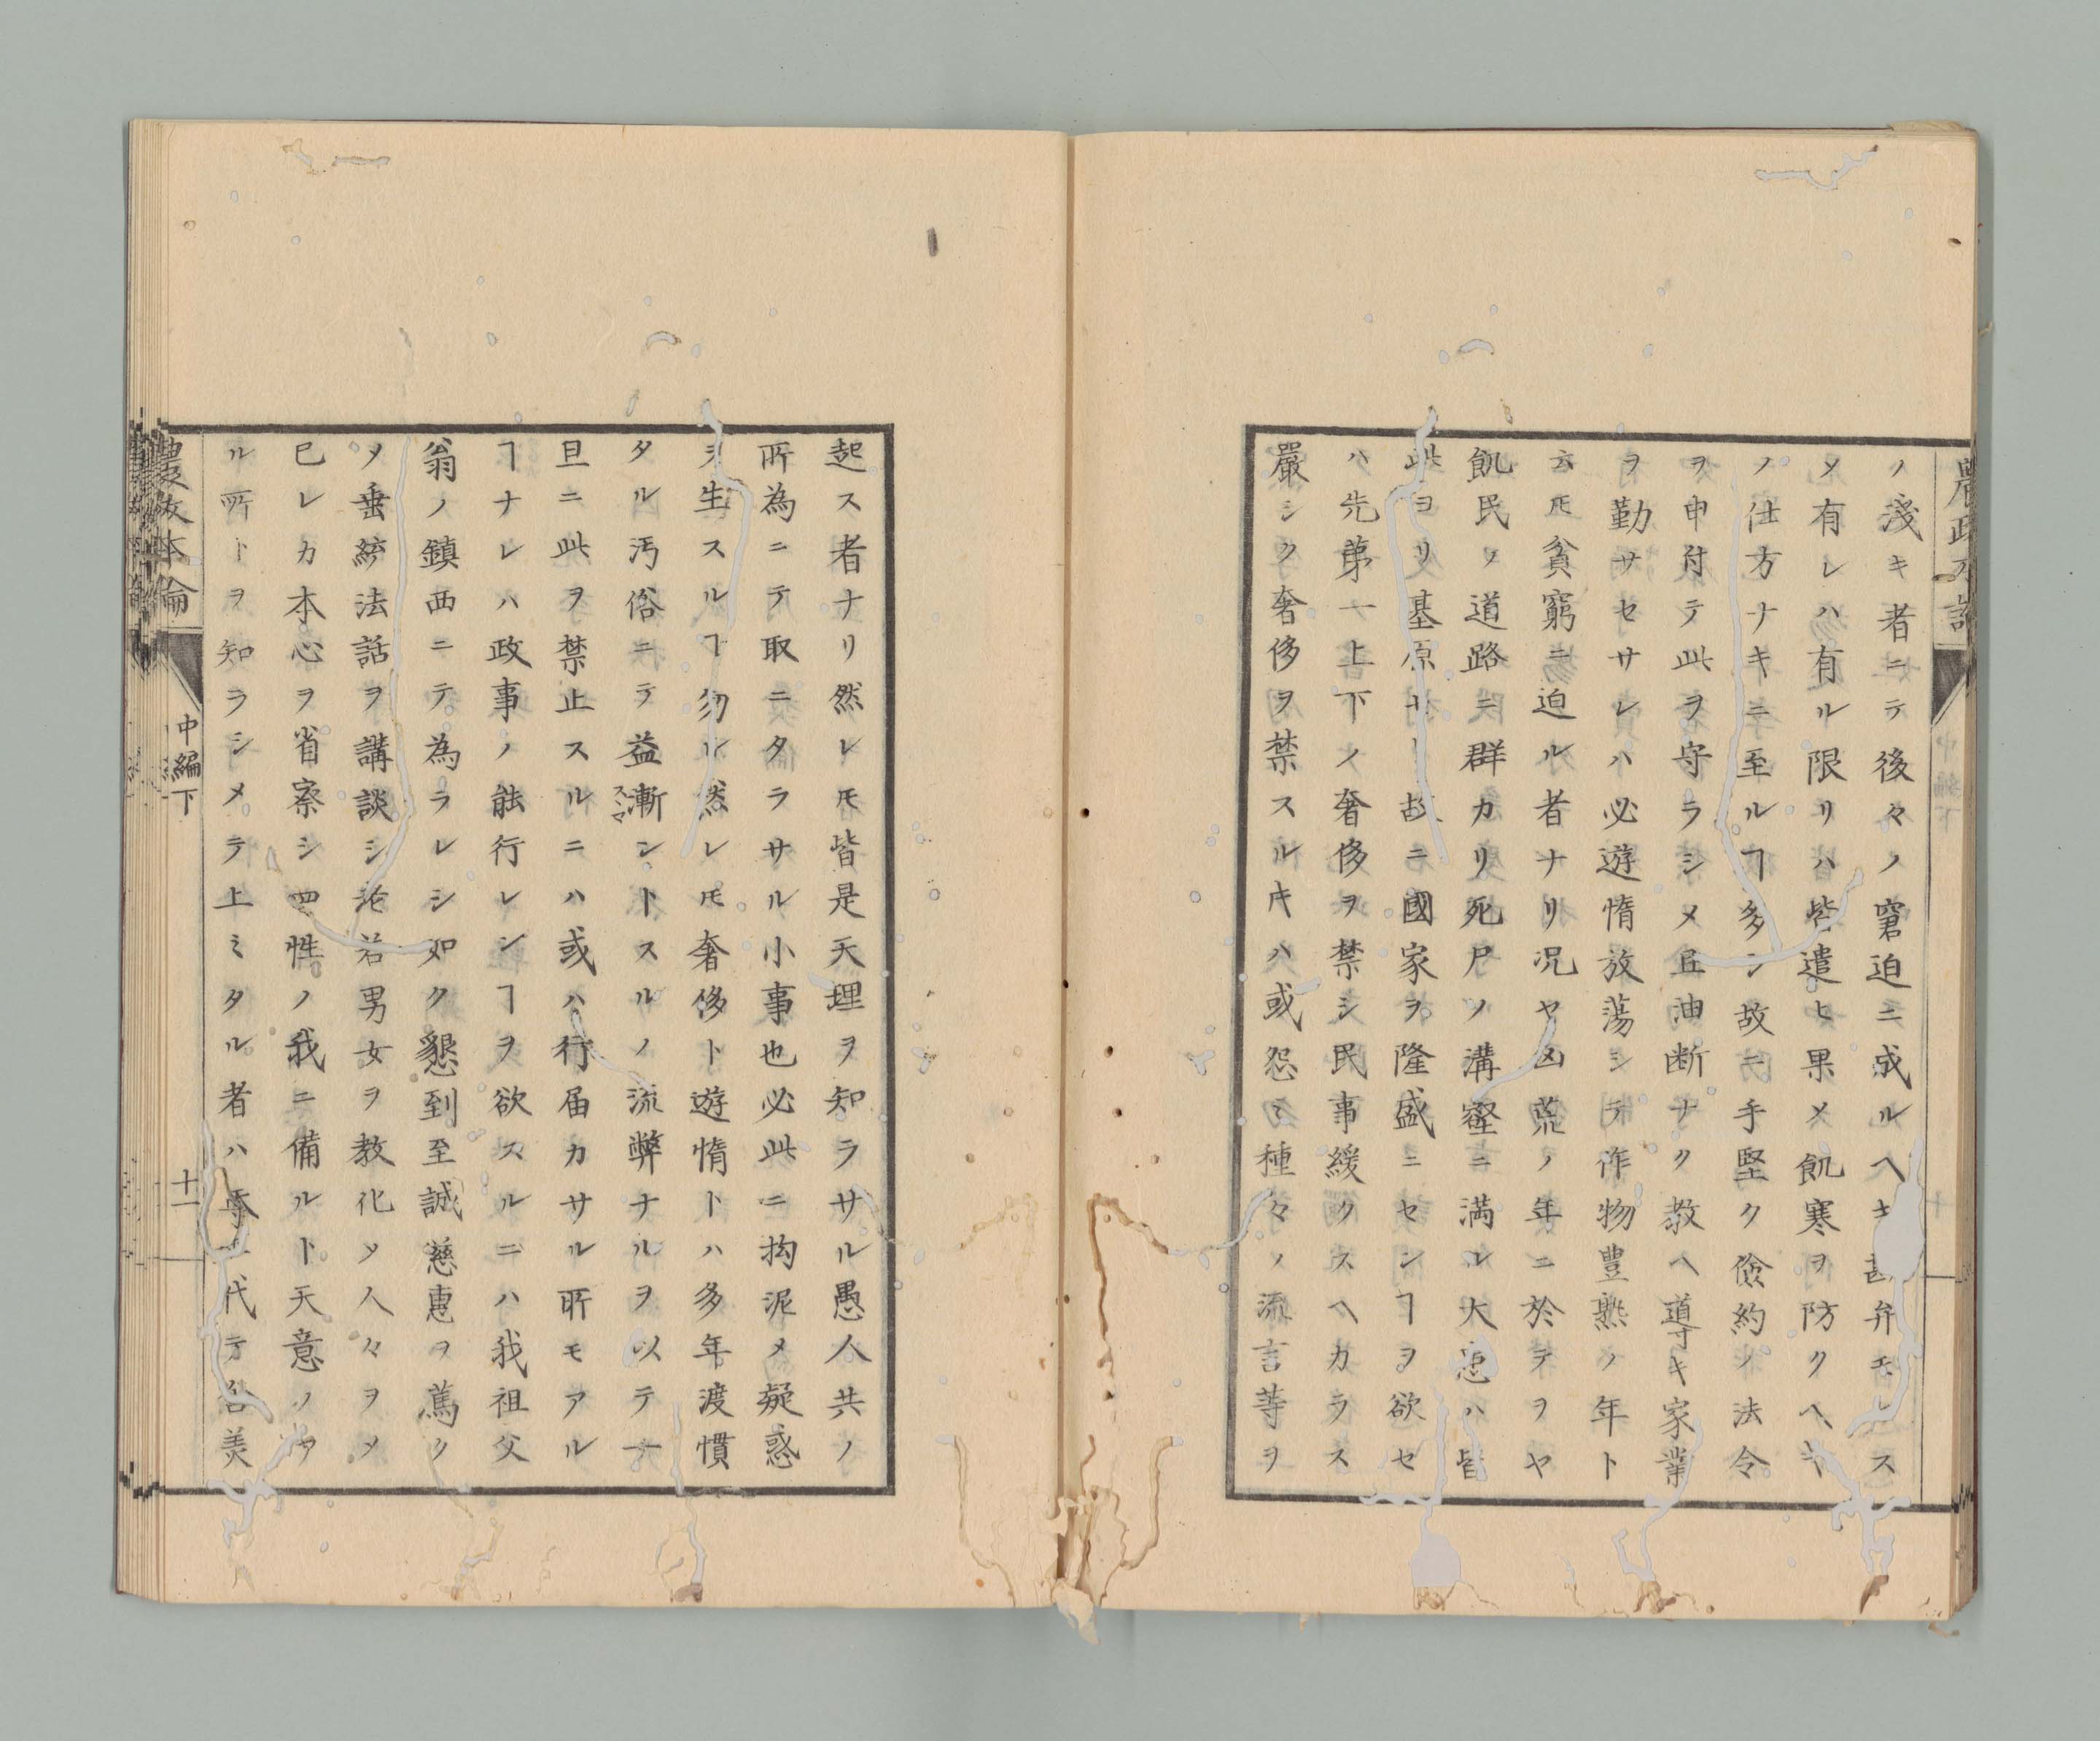 ノ淺キ者ニテ後々ノ窘迫ニ成ルヘキ勘弁モセス
メ有レハ有ル限リハ皆遣ヒ果メ飢寒ヲ防クヘキ
ノ仕方ナキニ至ルヿ多シ故ニ手堅ク儉約ノ法令
ヲ申付テ此ヲ守ラシメ且油断ナク教ヘ導キ家業
ヲ勤サセサレハ必遊惰放蕩シテ作物豊熟ノ年ト
云𪜈貧窮ニ迫ル者ナリ况ヤ凶荒ノ年ニ於テヲヤ
飢民ノ道路ニ群カリ死尸ノ溝壑ニ満レ大悪ハ皆
此ヨリ基原 故ニ國家ヲ隆盛ニセンヿヲ欲セ
ハ先苐一上下ノ奢侈ヲ禁シ民事緩クスヘカラス
嚴シク奢侈ヲ禁スルキハ或怨ミ種々ノ流言等ヲ
中編下
起ス者ナリ然レ𪜈皆是天理ヲ知ラサル愚人共ノ
所為ニテ取ニタラサル小事也必此ニ拘泥メ疑惑
ヲ生スルヿ勿レ然レ𪜈奢侈ト遊惰トハ多年渡慣
タル汚俗ニテ益漸ススマントスルノ流弊ナルヲ以テ一
旦ニ此ヲ禁止スルニハ或ハ行届カサル所モアル
ヿナレハ政事ノ能行レンヿヲ欲スルニハ我祖父
翁ノ鎮西ニテ為ラレシ如ク懇到至誠慈惠ヲ篤ク
メ垂綍法話ヲ講談シ老若男女ヲ教化メ人々ヲメ
己レカ本心ヲ省察シ四性ノ我ニ備ルト天意ノア
ル所トヲ知ラシメテ上ミタル者ハ 代テ 羙
農政本論
中編下
十一